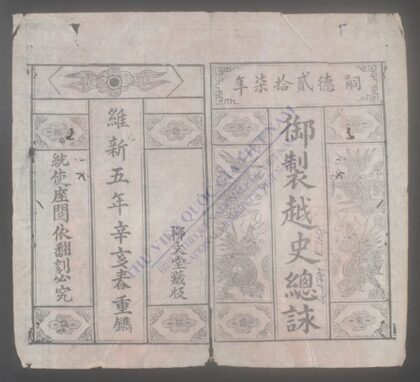 嗣德貳拾柒年
御製越史總詠
柳文堂藏板
維新五年辛亥春重鐫
統使座閱依翻刻公究
THƯ VIỆN QUỐC GIA VIỆT NAM